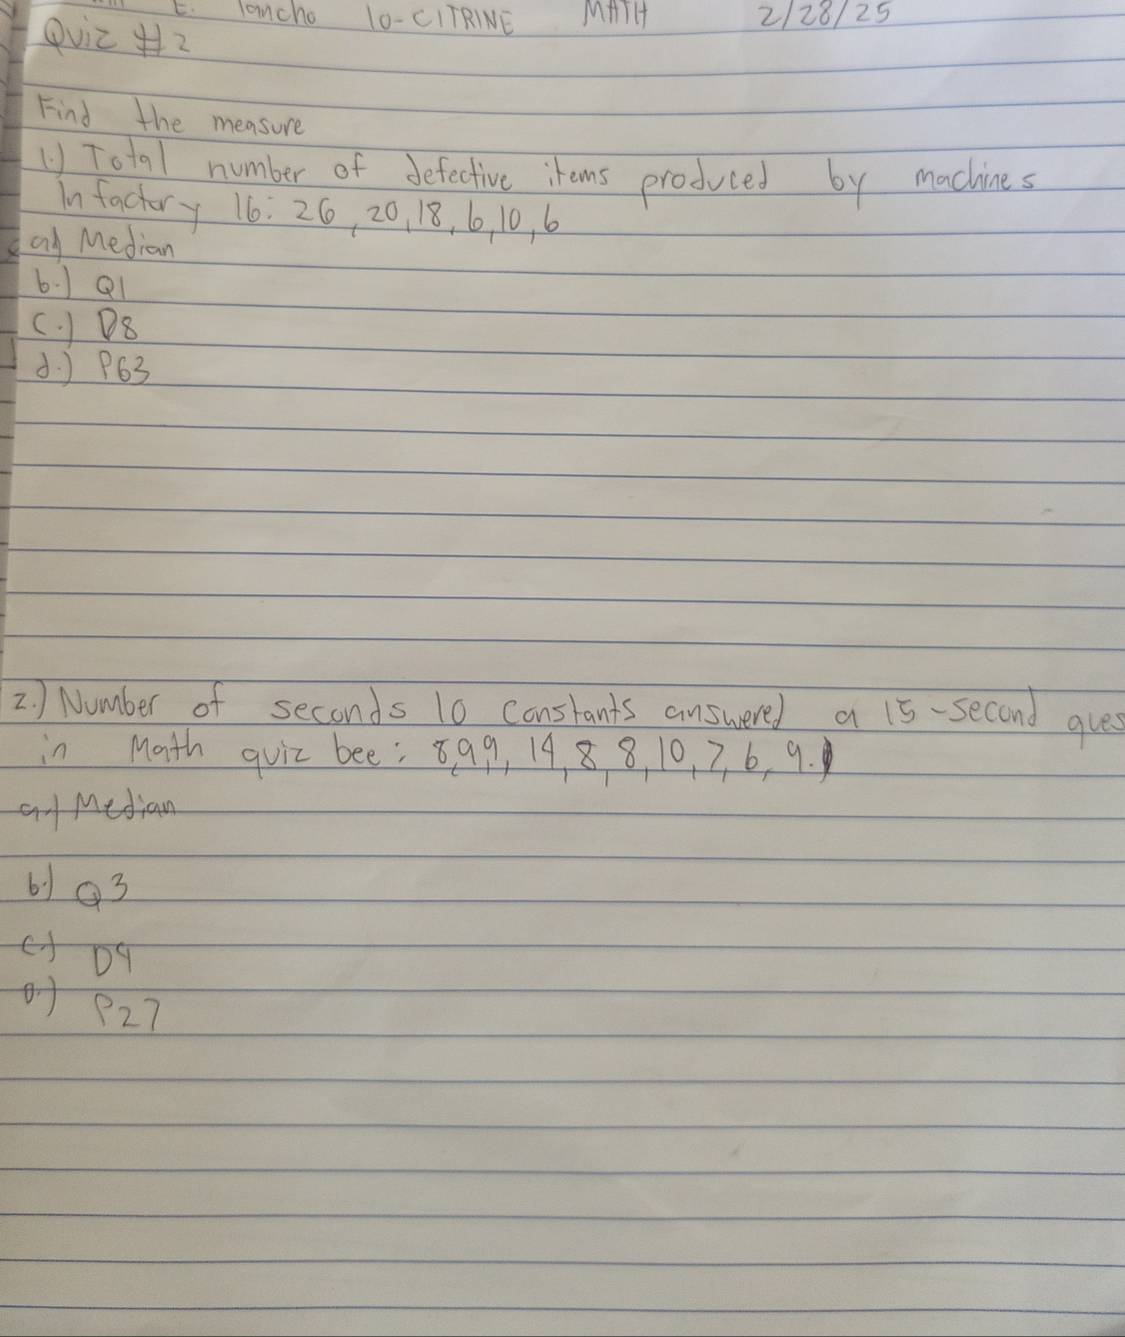 E. Tancho 10-CITRINE MATH 2/28/25
Quiz #2
Find the measure
1.) Total number of defective items produced by machines
In factory 16: 26, 20, 18, 6, 10, 6
a.) Median
b.) Q1
C.) D8
d.) P63
2.) Number of seconds 10 constants answered a 15-second ques
in Math quiz bee: 8, 9 9, 14, 8, 8, 10, 7, 6, 9.
a.) Median
b.) Q3
c.) D9
D.) P27